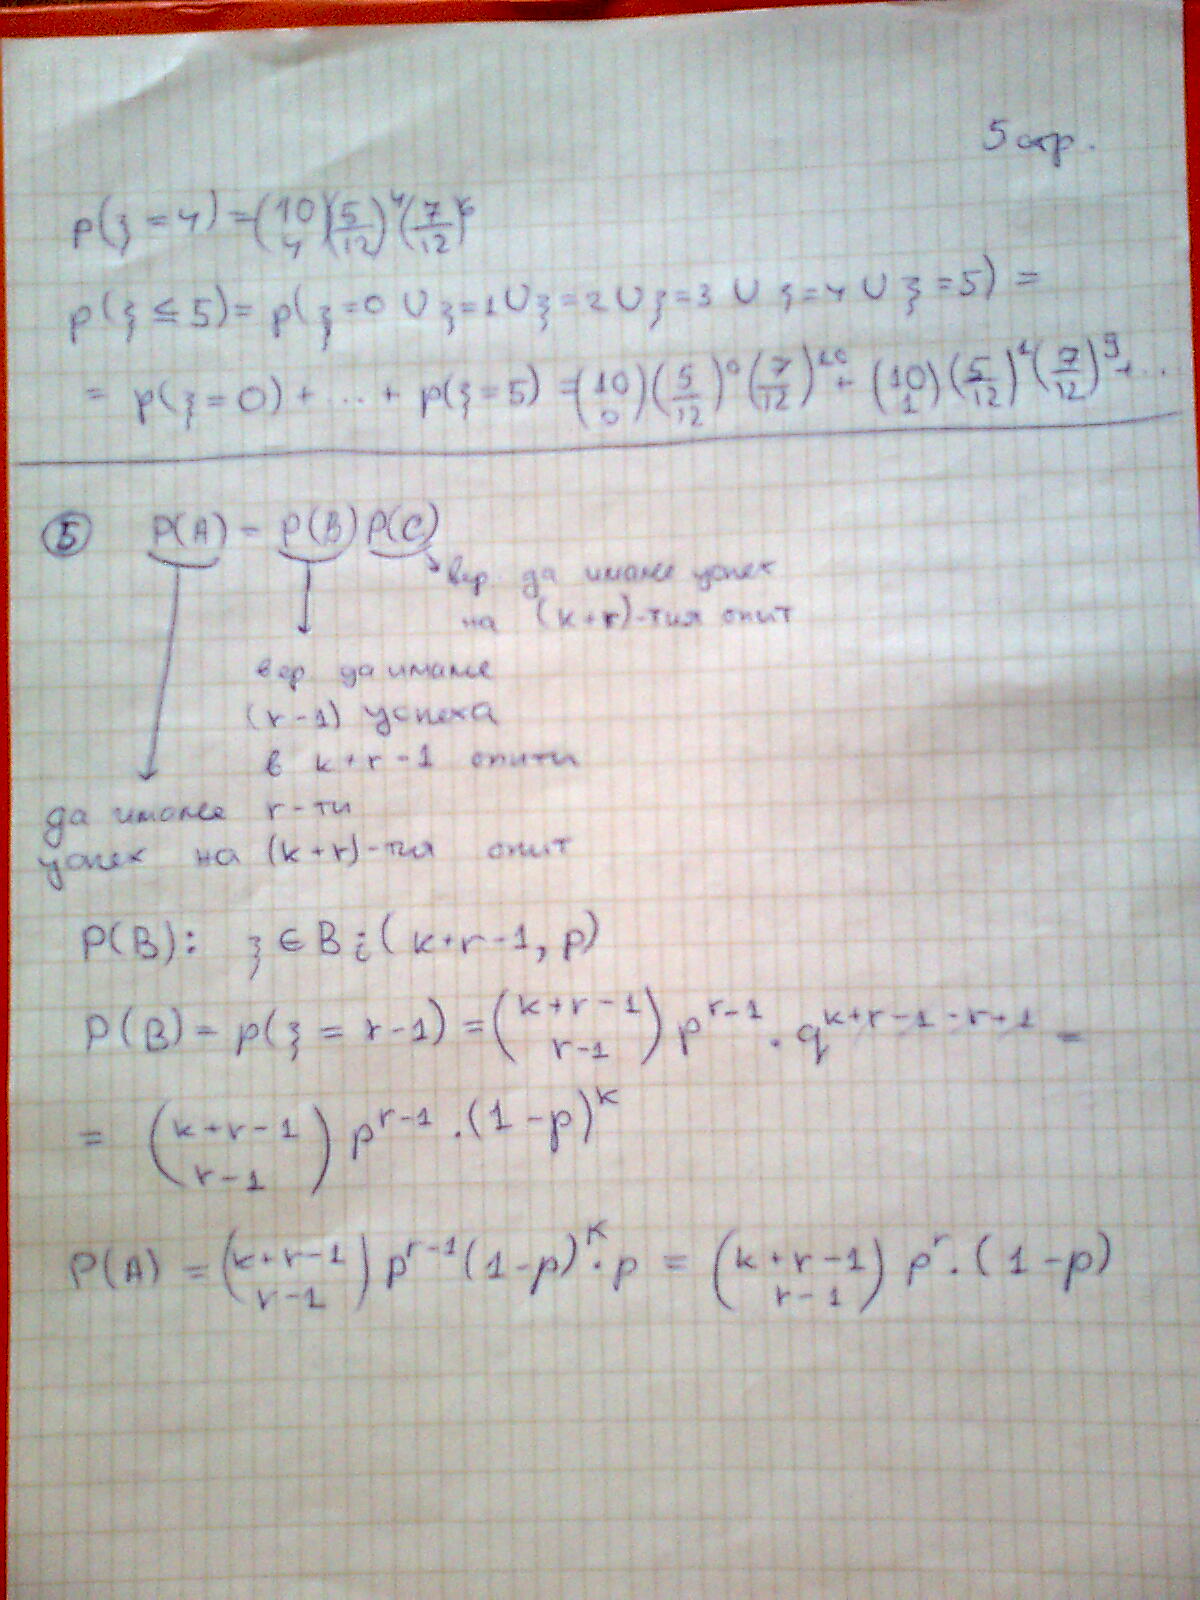 5 стр.
p(ξ = 4) = (10 4)(5/12)^4(7/12)^6
p(ξ ≤ 5) = p(ξ = 0 ∪ ξ = 1 ∪ ξ = 2 ∪ ξ = 3 ∪ ξ = 4 ∪ ξ = 5) =
= p(ξ = 0) + ... + p(ξ = 5) = (10 0)(5/12)^0(7/12)^10 + (10 1)(5/12)^1(7/12)^9 + ...
⑤ P(A) = P(B) P(C)
вер. да имаме успех
на (k+r)-тия опит
вер да имаме
(r-1) успеха
в k+r-1 опити
да имаме r-ти
успех на (k+r)-тия опит
P(B): ξ ∈ Bi(k+r-1, p)
P(B) = p(ξ = r-1) = (k+r-1 r-1) p^(r-1) . q^(k+r-1-r+1) =
= (k+r-1 r-1) p^(r-1) . (1-p)^k
P(A) = (k+r-1 r-1) p^(r-1) (1-p)^k . p = (k+r-1 r-1) p^r . (1-p)